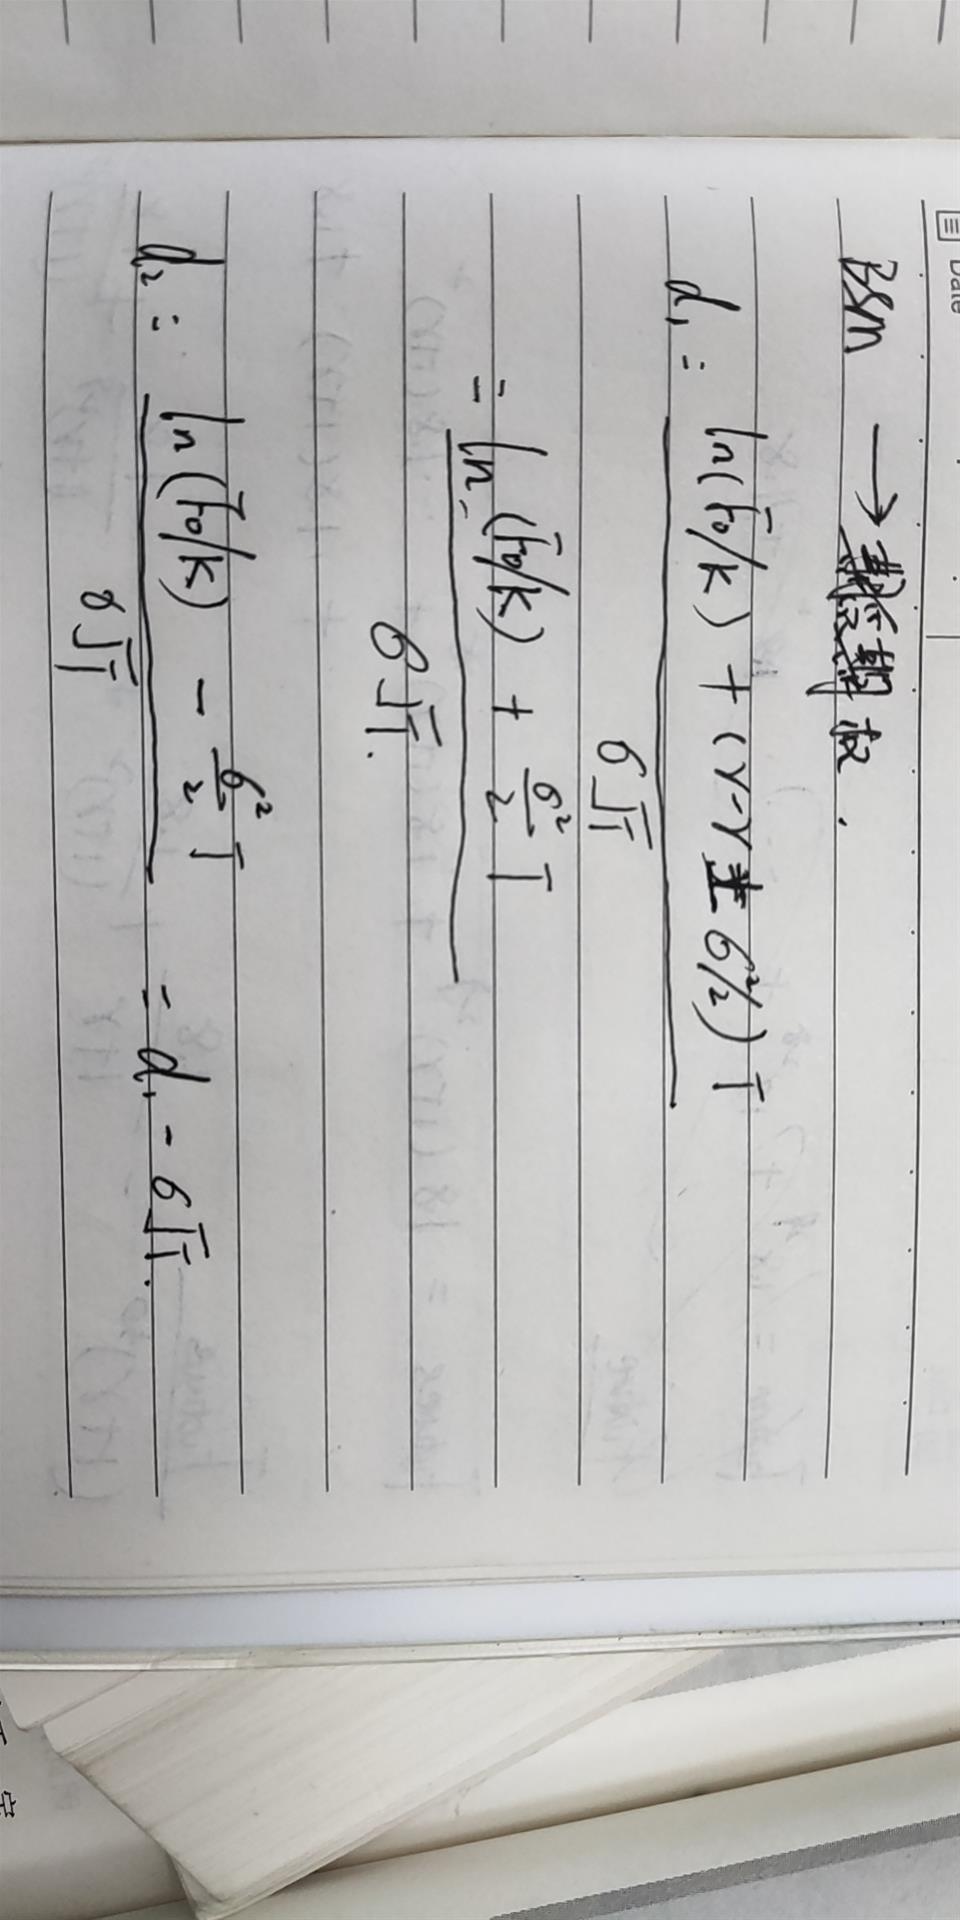 Date
BSM → 期权.
d₁ = ln(F₀/K) + (r-r+σ²/2)T
σ√T
= ln(F₀/K) + σ²/2 T
σ√T.
d₂ = ln(F₀/K) - σ²/2 T = d₁ - σ√T.
σ√T